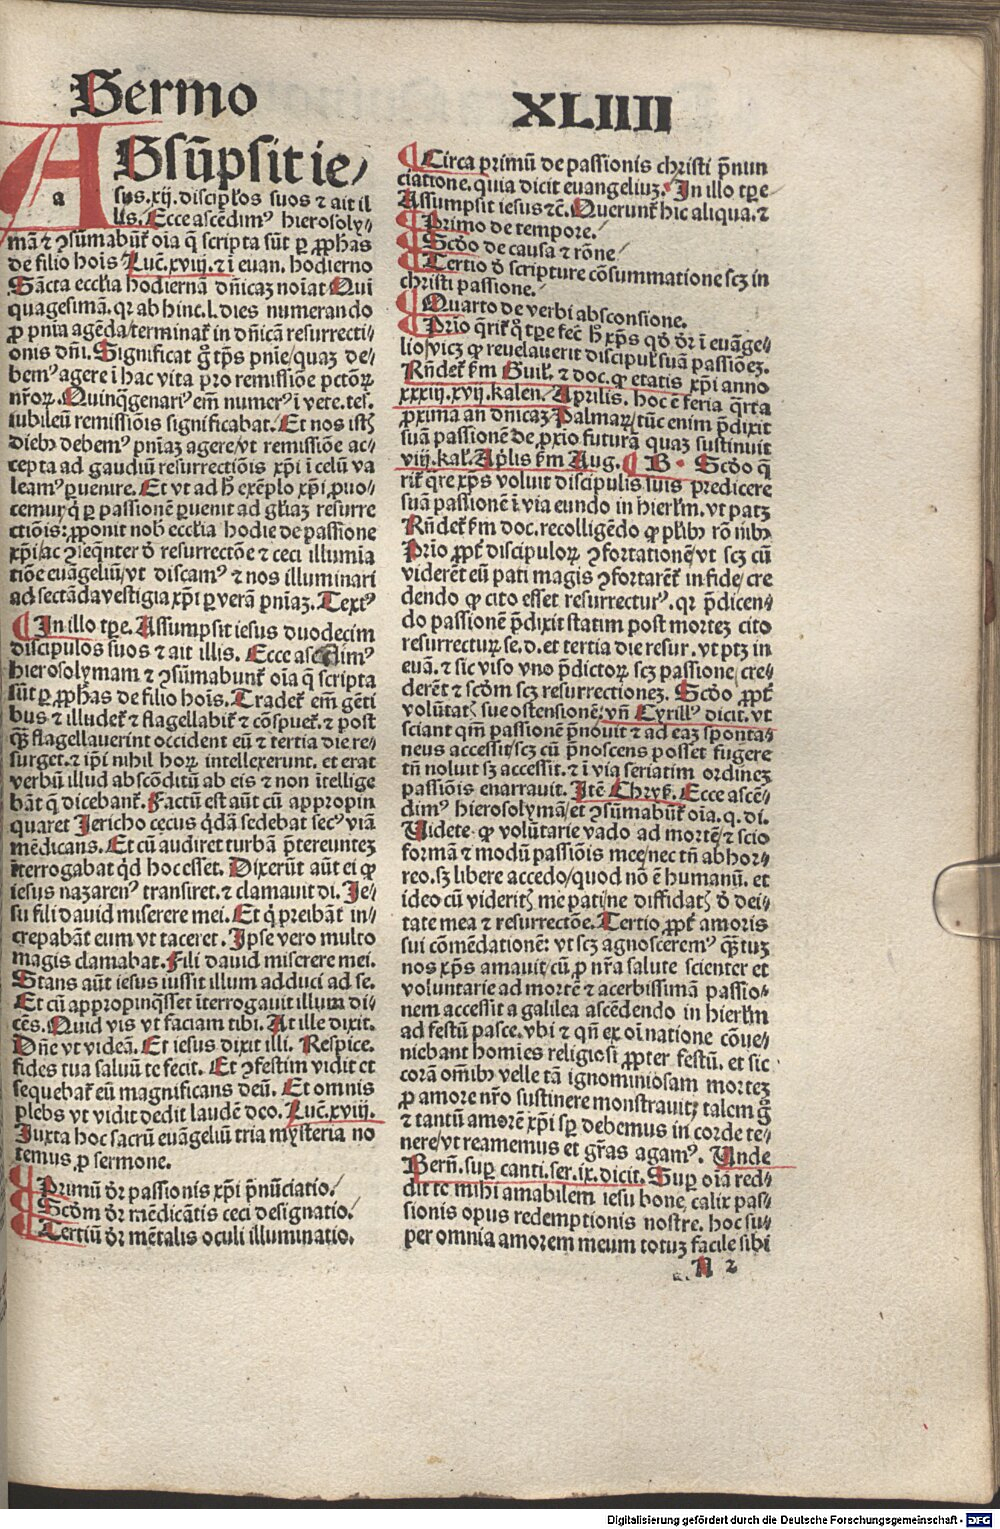 Sermo
XLIIII
ASsūpsit ie/
a
sus.xij.discipl'os suos ⁊ ait il
lis. Ecce ascēdimꝰ hierosoly/
mā ⁊ ꝯsūmabūt᷑ oīa q̄ scripta sūt ꝑ ꝓphas
de filio hoīs Luc̄.xviij.⁊ ī euan. hodierno
Sācta eccl'ia hodiernā dn̄icaꝫ noīat Qui
quagesimā. qꝛ ab hinc.l.dies numerando
ꝓ pn̄ia agēda/terminat᷑ in dn̄icā resurrecti/
onis dn̄i. Significat g̊ tp̄s pn̄ie/quaꝫ de/
bemꝰ agere ī hac vita pro remissiōe pctōꝝ
nr̄oꝝ. Quinq̄genariꝰ em̄ numerꝰ ī vete.tes.
iubileū remissiōis significabat. Et nos istꝭ
diebꝰ debemꝰ pn̄iaꝫ agere/vt remissiōe ac/
cepta ad gaudiū resurrectiōis xp̄i ī celū va
leamꝰ ꝑuenire. Et vt ad h̄ exēplo xp̄i ꝓuo/
cemur/q̇ ꝑ passionē ꝑuenit ad gl'iaꝫ resurre
ctiōis: ꝓponit nob̄ eccl'ia hodie de passione
xp̄i/ac ꝯseq̄nter ꝺ̄ resurrectōe ⁊ ceci illumīa
tiōe euāgeliū/vt discamꝰ ⁊ nos illuminari
ad sectāda vestigia xp̄i ꝑ verā pn̄iaꝫ. Textꝰ
¶ In illo tꝑe. Assumpsit iesus duodecim
discipulos suos ⁊ ait illis. Ecce ascēdimꝰ
hierosolymam ⁊ ꝯsūmabunt᷑ oīa q̄ scripta
sūt ꝑ ꝓphas de filio hoīs. Tradet᷑ em̄ gēti
bus ⁊ illudet᷑ ⁊ flagellabit᷑ ⁊ cōspuet᷑. ⁊ post
qꝫ̄ flagellauerint occident eū ⁊ tertia die re/
surget.⁊ ip̄i nihil hoꝝ intellexerunt. et erat
verbū illud abscōditū ab eis ⁊ non ītellige
bāt q̄ dicebant᷑. Factū est aūt cū appropin
quaret Jericho cecus q̇dā sedebat secꝰ viā
mēdicans. Et cū audiret turbā p̄tereunteꝫ
īterrogabat q̇d hoc esset. Dixerūt aūt ei ꝙ
iesus nazarenꝰ transiret.⁊ clamauit di. Je/
su fili dauid miserere mei. Et q̇ p̄reibāt in/
crepabāt eum vt taceret. Ipse vero multo
magis clamabat. Fili dauid miserere mei.
Stans aūt iesus iussit illum adduci ad se.
Et cū appropinq̄sset īterrogauit illum di/
cēs. Quid vis vt faciam tibi. At ille dixit.
Dn̄e vt videā. Et iesus dixit illi. Respice.
fides tua saluū te fecit. Et ꝯfestim vidit et
sequebat᷑ eū magnificans deū. Et omnis
plebs vt vidit dedit laudē deo. Luc̄.xviij.
Juxta hoc sacrū euāgeliū tria mysteria no
temus ꝓ sermone.
¶ Primū dr̄ passionis xp̄i p̄nūciatio/
¶ Scd̄m dr̄ mēdicātis ceci designatio/
¶ Tertiū dr̄ mētalis oculi illuminatio.
¶ Circa primū de passionis christi p̄nun
ciatione. quia dicit euangeliuꝫ. In illo tꝑe
Assumpsit iesus ⁊c̄. Querunt᷑ hic aliqua.⁊
¶ Primo de tempore.
¶ Scd̄o de causa ⁊ rōne/
¶ Tertio ꝺ̄ scripture cōsummatione scꝫ in
christi passione.
¶ Quarto de verbi absconsione.
¶ Prīo q̄rit᷑ q̊ tꝑe fec̄ h̄ xp̄s qd̊ dr̄ ī euāge/
lio/vicꝫ ꝙ reuelauerit discipul' suā passiōeꝫ.
Rn̄det᷑ fm Guil'. ⁊ doc.ꝙ etatis xp̄i anno
xxxiij.xvij.kalen. Aprilis. hoc ē feria q̄rta
ꝓxima an̄ dn̄icaꝫ Palmaꝝ/tūc enim p̄dixit
suā passionē de ꝓxīo futurā quaꝫ sustinuit
viij.kal'. Ap̄lis fm Aug. ¶ B. Scd̄o q̄
rit᷑ q̄re xp̄s voluit discipulis suis predicere
suā passionē ī via eundo in hierl'm. vt patꝫ
Rn̄det᷑ fm doc.recolligēdo ꝙ pl'ibꝰ rōnibꝰ
Prīo ꝓpt᷑ discipuloꝝ ꝯfortationē/vt scꝫ cū
viderēt eū pati magis ꝯfortarēt᷑ in fide/cre
dendo ꝙ cito esset resurrecturꝰ. qꝛ p̄dicen/
do passionē p̄dixit statim post morteꝫ cito
resurrectuꝝ se.d.et tertia die resur.vt ptꝫ in
euā.⁊ sic viso vno p̄dictoꝝ scꝫ passione/cre/
derēt ⁊ scd̄m scꝫ resurrectioneꝫ. Scd̄o ꝓpt᷑
volūtatꝭ sue ostensionē: vn̄ Cyrillꝰ dicit. vt
sciant qm̄ passionē p̄nouit ⁊ ad eaꝫ sponta/
neus accessit/scꝫ cū p̄noscens posset fugere
tn̄ noluit sꝫ accessit.⁊ ī via seriatim ordineꝫ
passiōis enarrauit. Itē Chrys̄. Ecce ascē/
dimꝰ hierosolymā/et ꝯsūmabunt᷑ oīa.q.di.
Videte ꝙ volūtarie vado ad mortē/⁊ scio
formā ⁊ modū passiōis mee/nec tn̄ abhor/
reo.sꝫ libere accedo/quod nō ē humanū. et
ideo cū videritꝭ me pati/ne diffidatꝭ ꝺ̄ dei/
tate mea ⁊ resurrectōe. Tertio ꝓpt᷑ amoris
sui cōmēdationē: vt scꝫ agnosceremꝰ qꝫ̄tuꝫ
nos xp̄s amauit/cū ꝓ nr̄a salute scienter et
voluntarie ad mortē ⁊ acerbissimā passio/
nem accessit a galilea ascēdendo in hierl'm
ad festū pasce. vbi ⁊ qn̄ ex oī natione cōue/
niebant homīes religiosi ꝓpter festū. et sic
corā om̄ibꝰ velle tā ignominiosam morteꝫ
ꝓ amore nr̄o sustinere monstrauit: talem g̊
⁊ tantū amorē xp̄i sꝑ debemus in corde te/
nere/vt reamemus et gr̄as agamꝰ. Unde
Bern̄. suꝑ canti.ser.ix.dicit. Suꝑ oīa red/
dit te mihi amabilem iesu bone calix pas/
sionis opus redemptionis nostre. hoc su/
per omnia amorem meum totuꝫ facile sibi
A 2
Digitalisierung gefördert durch die Deutsche Forschungsgemeinschaft - DFG